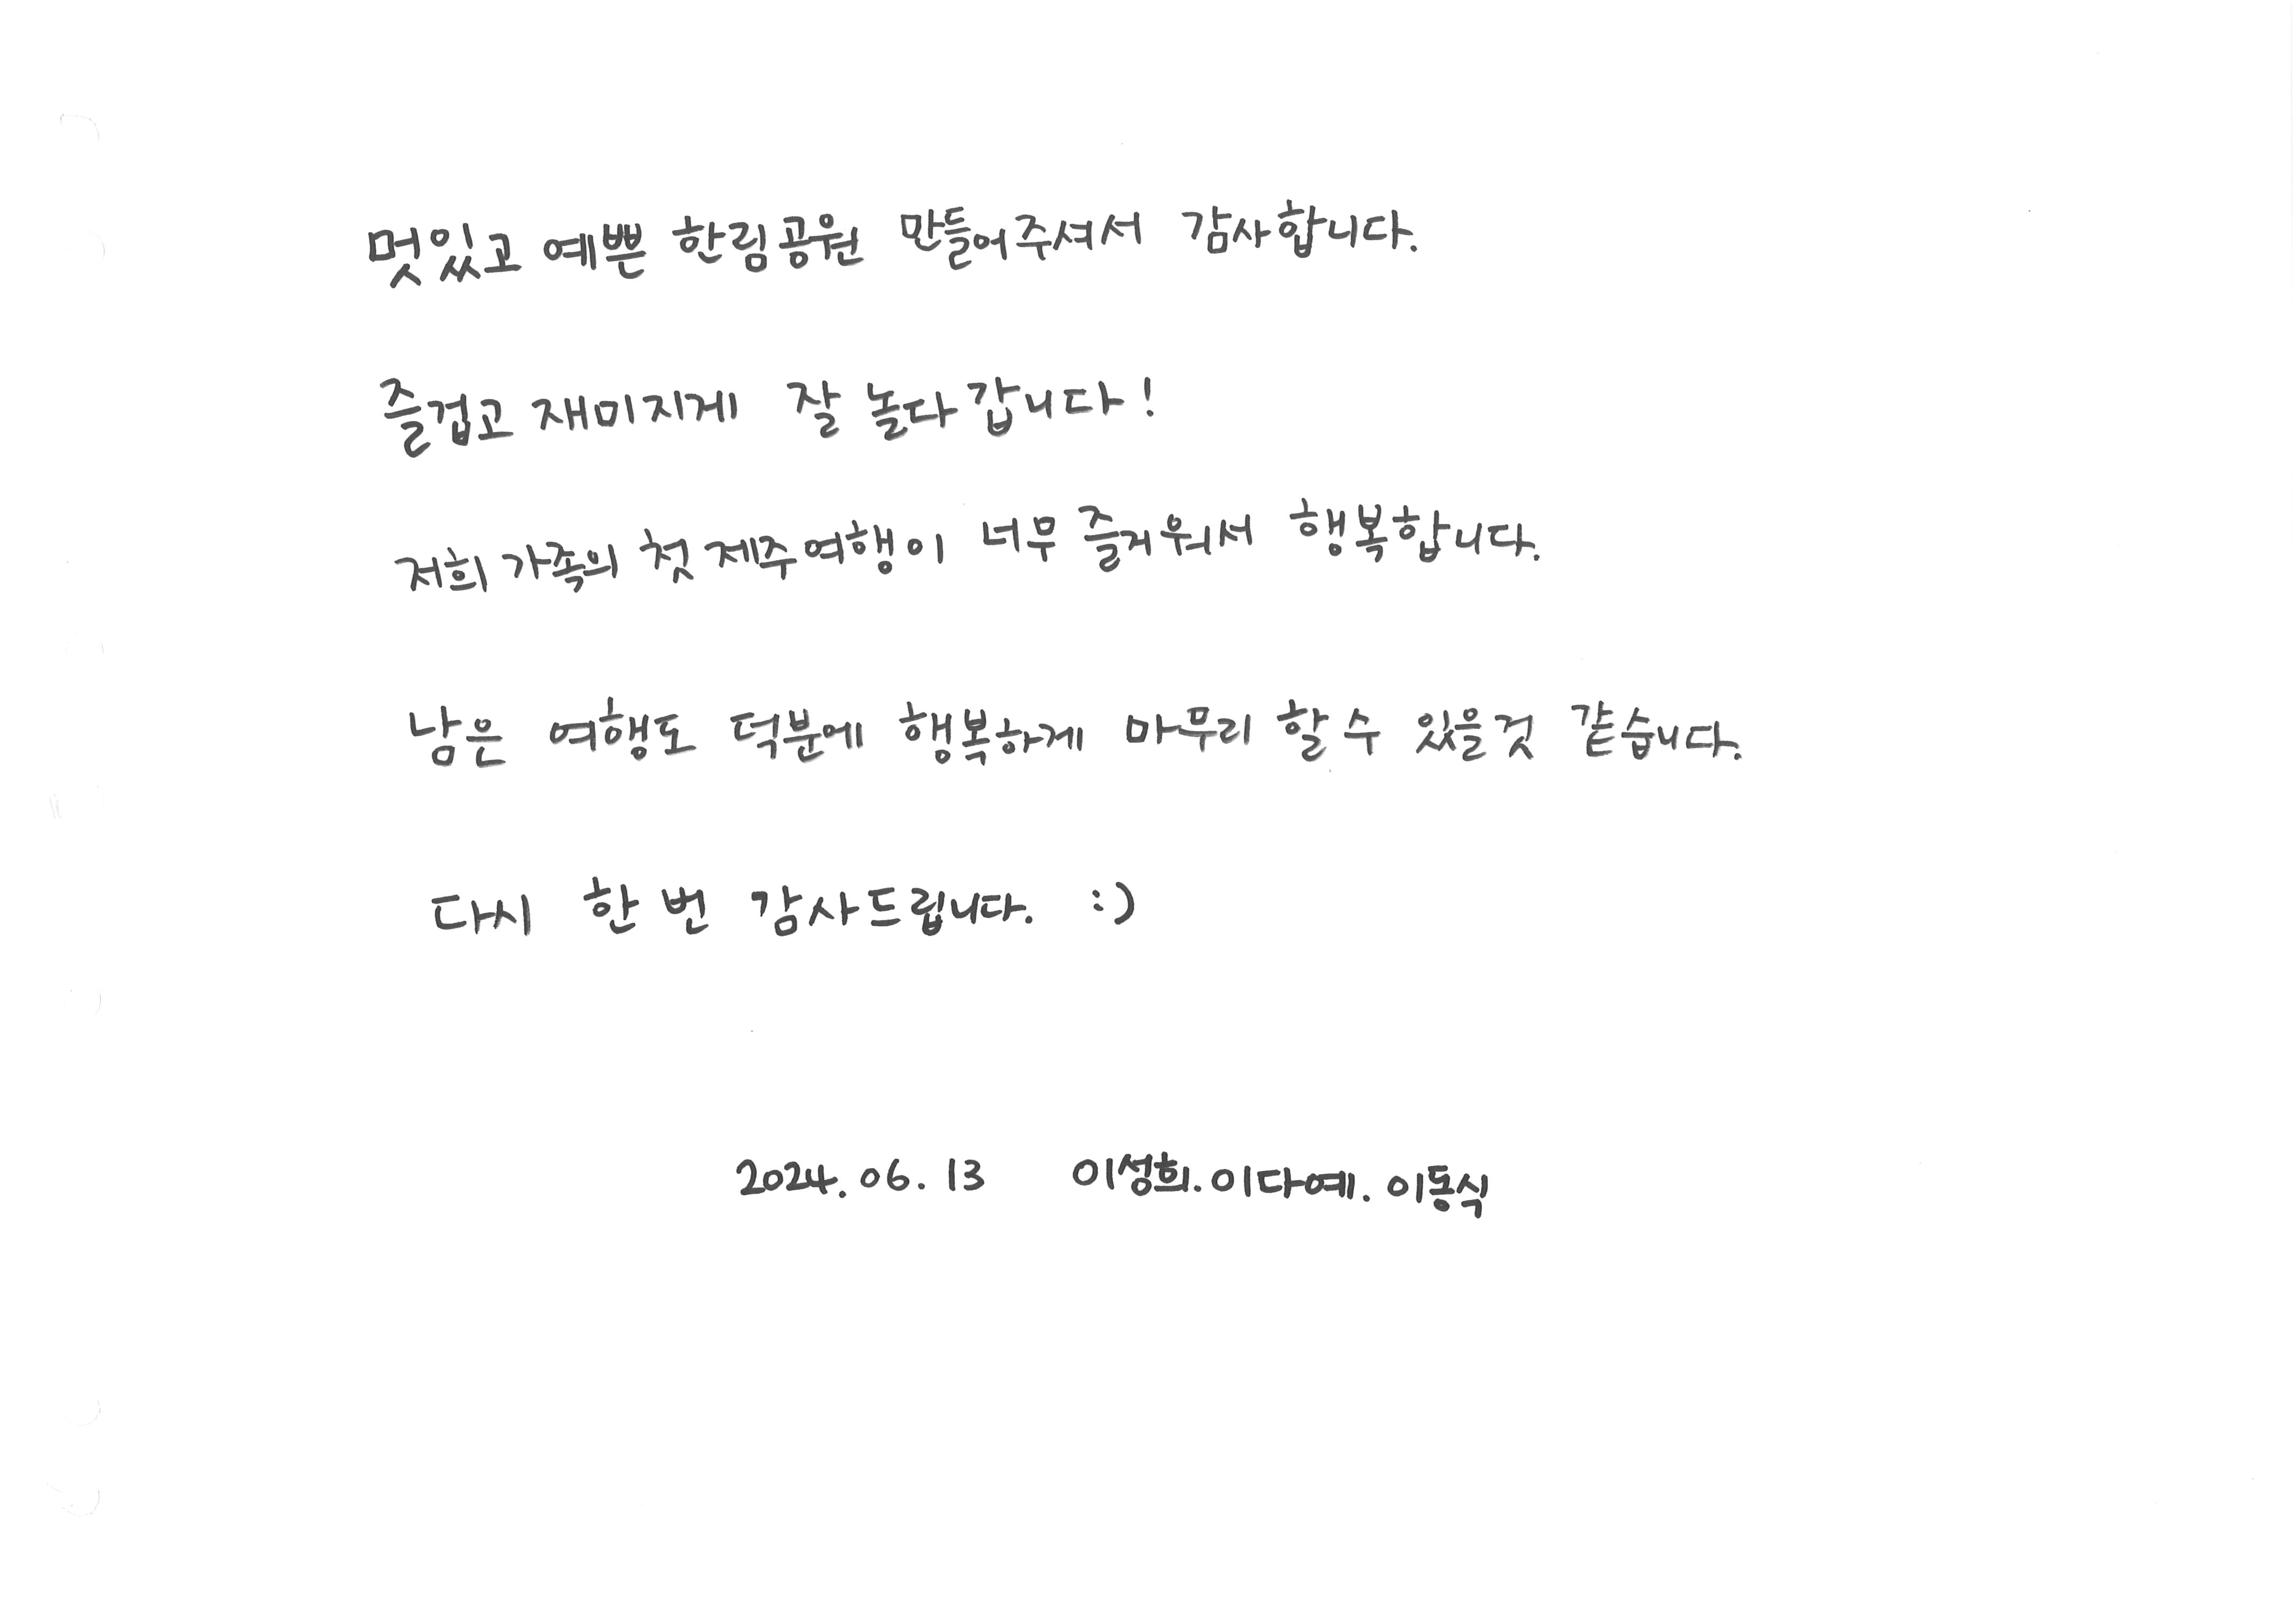 멋있고 예쁜 한림공원 만들어주셔서 감사합니다.
즐겁고 재미지게 잘 놀다 갑니다!
저희 가족의 첫 제주여행이 너무 즐거워서 행복합니다.
남은 여행도 덕분에 행복하게 마무리 할 수 있을것 같습니다.
다시 한 번 감사드립니다. :)
2024.06.13 이성희.이다예.이동식